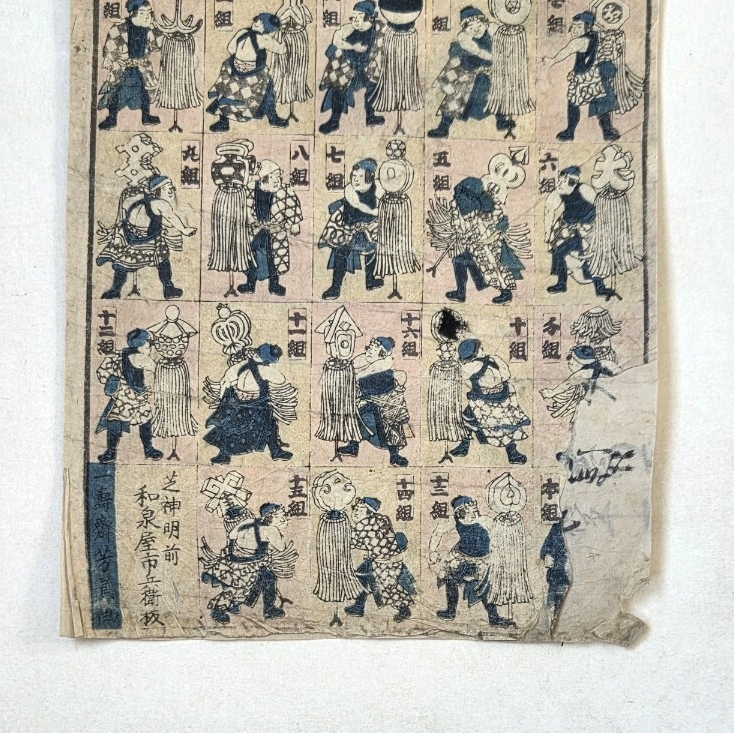 組
組
組
組
組
六組
五組
七組
八組
九組
千組
十組
十六組
十一組
十二組
本組
十三組
十四組
十五組
芝神明前
和泉屋市兵衛板
一壽齋芳員画